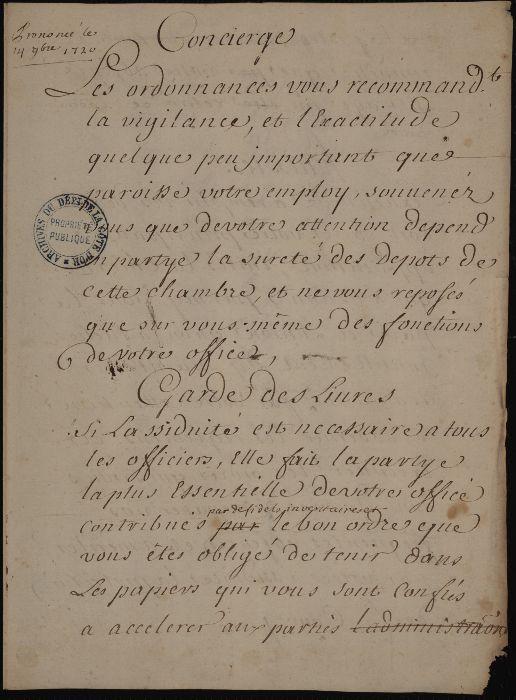 Prononcé le
14 9bre 1720
Concierge
Les ordonnances vous recommandt
la vigilance, et l'Exactitude
quelque peu jmportant que
paroisse votre employ, souvenéz
vous que devotre attention depend
en partye la sureté des depots de
cette chambre, et ne vous reposés
que sur vous-même des fonctions
de votre office,
Garde des Livres
Si Lassiduité est necessaire a tous
les officiers, Elle fait la partye
la plus Essentielle devotre office
par de fidels inventaires et
contribués par le bon ordre que
vous êtes obligé de tenir dans
Les papiers qui vous sont confiés
a accelerer aux parties Ladministraõn
ARCHIVES DU DÉPT DE LA CÔTE D'OR
PROPRIÉTÉ
PUBLIQUE